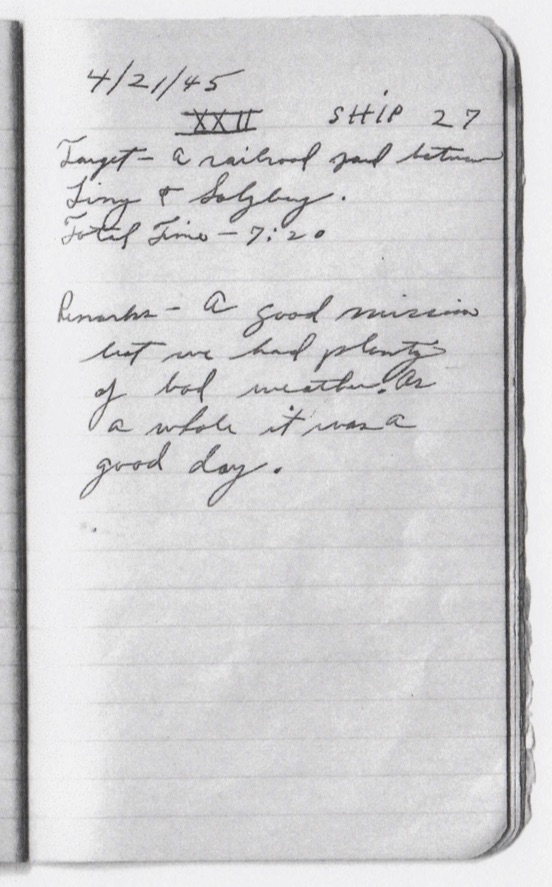 4/21/45
XXII SHIP 27
Target - A railroad yard between
Linz & Salzburg.
Total Time - 7:20
Remarks - A good mission
but we had plenty
of bad weather. As
a whole it was a
good day.